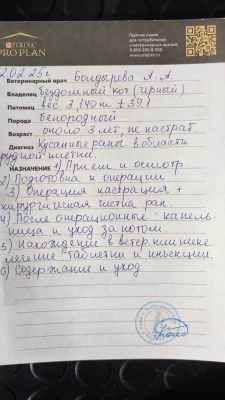 PURINA
PRO PLAN
Горячая линия
для потребителей
и ветеринарных врачей
2025г.
Ветеринарный врач Болдырева Л. А
Владелец Бездомный кот (чёрный)
Питомец вес 3,140 т 39.1
Порода Беспородный
Возраст около 3 лет, не кастрат
Диагноз Кусанные раны в области
грудной клетки.
НАЗНАЧЕНИЕ 1) Прием и осмотр
2) Подготовка и операции
3) Операция кастрация +
хирургическая чистка ран.
4) После операционные: капель-
ница и уход за котом
5) Нахождение в ветер. клинике
лечение таблетки и инъекции.
6) Содержание и уход